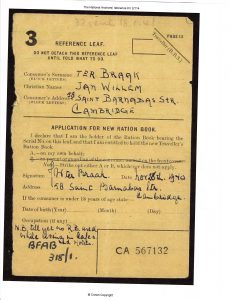 The National Archives' reference KV 2/114
PAGE 15
Traveller (R.B.1)
3 REFERENCE LEAF.
DO NOT DETACH THIS REFERENCE LEAF
UNTIL TOLD WHAT TO DO.
Consumer's Surname TER BRAAK
(BLOCK LETTERS)
Christian Names JAN WILLEM
Consumer's Address 58 SAINT BARNABAS STR.
(BLOCK LETTERS)
CAMBRIDGE
APPLICATION FOR NEW RATION BOOK.
I declare that I am the holder of the Ration Book bearing the
Serial No. on this leaf and that I am entitled to hold the new Traveller's
Ration Book
A.—on my own behalf;
Note.—Strike out option either A or B, whichever does not apply.
Signature Ter Braak Date Nov 1940
Address 58 Saint Barnabas Str.
Cambridge
If the consumer is under 18 years of age state
Date of birth (Year) (Month) (Day)
Occupation (if any)
BFAB
318/1.
CA 567132
© Crown Copyright